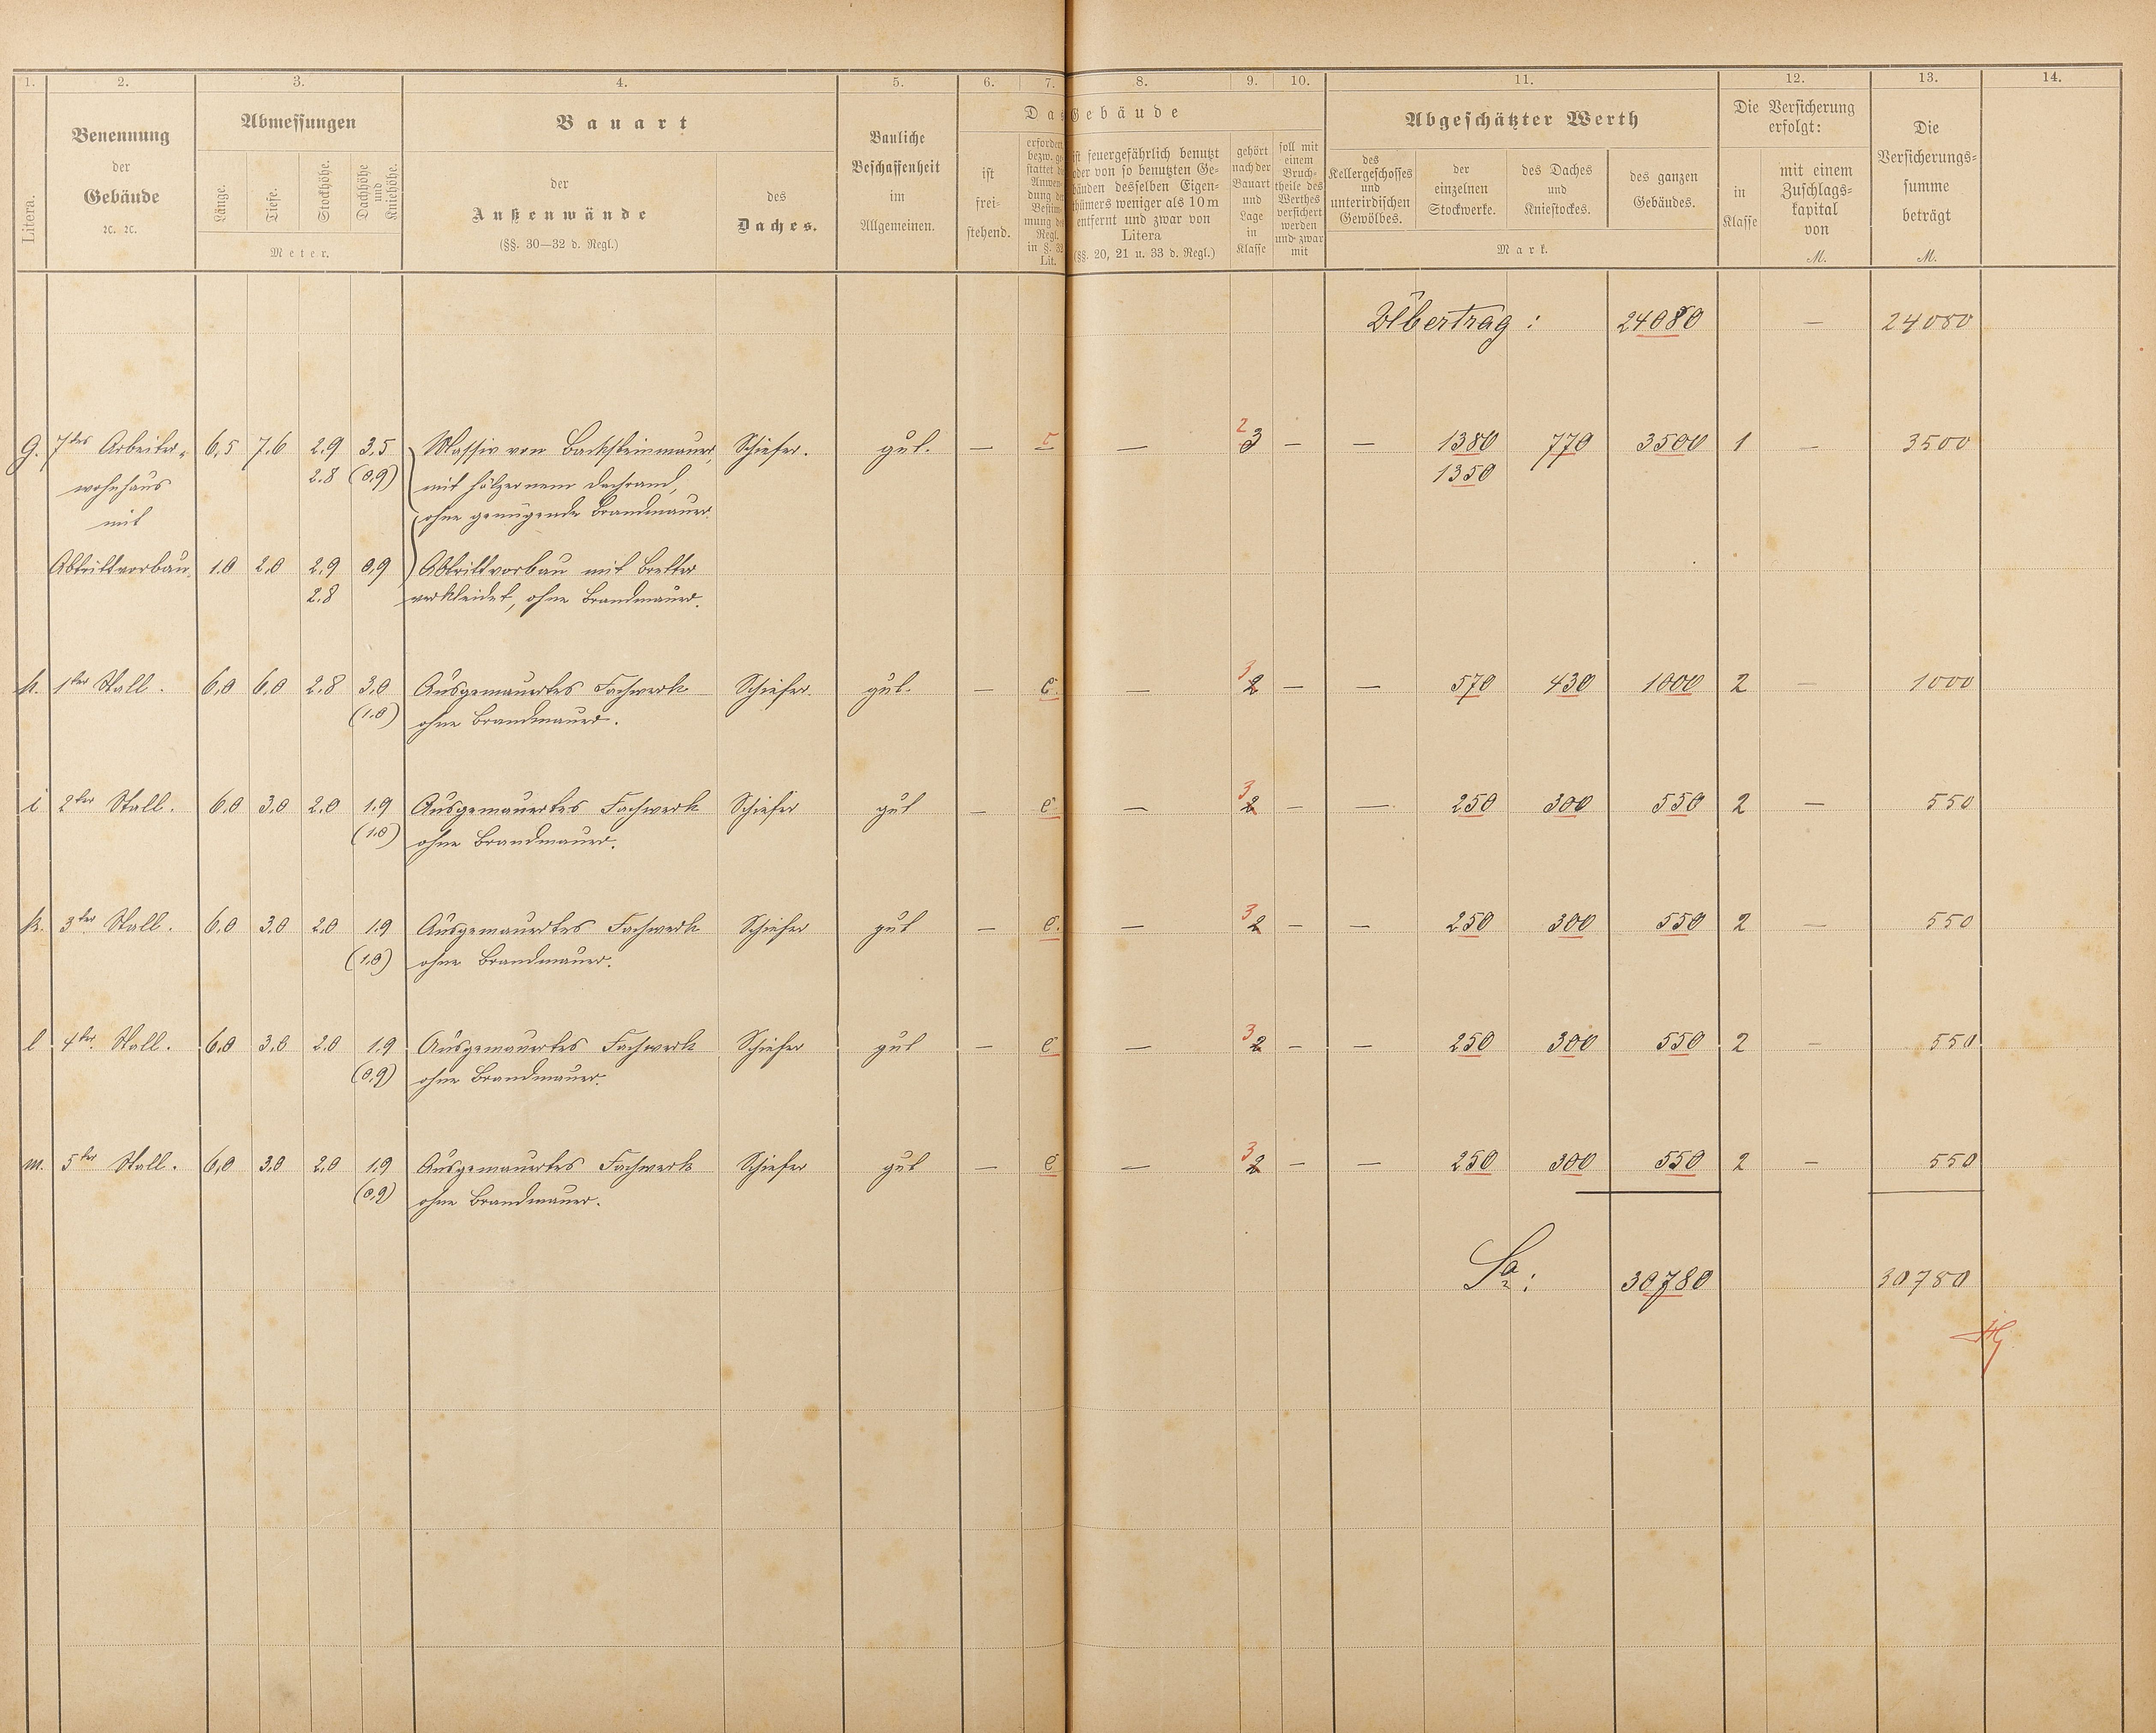 1. 2. 3. 4. 5. 6. 7. 8. 9. 10. 11. 12. 13. 14.
Litera.
Benennung
der
Gebäude
ꝛc. ꝛc.
Abmessungen
Länge.
Tiefe.
Stockhöhe.
Dachhöhe
und
Kniehöhe.
Meter.
Bauart
der
Außenwände
(§§. 30—32 d. Regl.)
des
Daches.
Bauliche
Beschaffenheit
im
Allgemeinen.
Das Gebäude
ist
frei-
stehend.
erfordert
bezw. ge-
stattet die
Anwen-
dung der
Bestim-
mung des
Regl.
in §. 32
Lit.
ist feuergefährlich benutzt
oder von so benutzten Ge-
bäuden desselben Eigen-
thümers weniger als 10 m
entfernt und zwar von
Litera
(§§. 20, 21 u. 33 d. Regl.)
gehört
nach der
Bauart
und
Lage
in
Klasse
soll mit
einem
Bruch-
theile des
Werthes
versichert
werden
und zwar
mit
Abgeschätzter Werth
des
Kellergeschosses
und
unterirdischen
Gewölbes.
der
einzelnen
Stockwerke.
des Daches
und
Kniestockes.
des ganzen
Gebäudes.
Mark.
Die Versicherung
erfolgt:
in
Klasse
mit einem
Zuschlags-
kapital
von
M.
Die
Versicherungs-
summe
beträgt
M.
Übertrag : 24080 — 24080
g. 7tes Arbeiter- 6,5 7,6 2,9 3,5 Massiv von Backsteinmauer, Schiefer. gut. — c — 2 3 — — 1380 770 3500 1 — 3500
wohnhaus 2.8 (0,9) mit hölzernem Dachrand, 1350
mit ohne genügende Brandmauer.
Abtrittvorbau. 1.0 2.0 2.9 0,9 Abtrittvorbau mit Bretter
2.8 verkleidet, ohne Brandmauer.
h. 1ter Stall. 6,0 6,0 2.8 3,0 Ausgemauertes Fachwerk Schiefer. gut. — e. — 3 2 — — 570 430 1000 2 — 1000
(1.0) ohne Brandmauer.
i 2ter Stall. 6.0 3,0 2.0 1.9 Ausgemauertes Fachwerk Schiefer gut — e — 3 2 — — 250 300 550 2 — 550
(1.0) ohne Brandmauer.
k. 3ter Stall. 6.0 3.0 2.0 1.9 Ausgemauertes Fachwerk Schiefer gut — e. — 3 2 — — 250 300 550 2 — 550
(1,0) ohne Brandmauer.
l 4ter Stall. 6,0 3,0 2.0 1.9 Ausgemauertes Fachwerk Schiefer gut — e — 3 2 — — 250 300 550 2 — 550
(0,9) ohne Brandmauer.
m. 5ter Stall. 6,0 3,0 2.0 1.9 Ausgemauertes Fachwerk Schiefer gut — e — 3 2 — — 250 300 550 2 — 550
(0,9) ohne Brandmauer.
Sa: 30780 30780